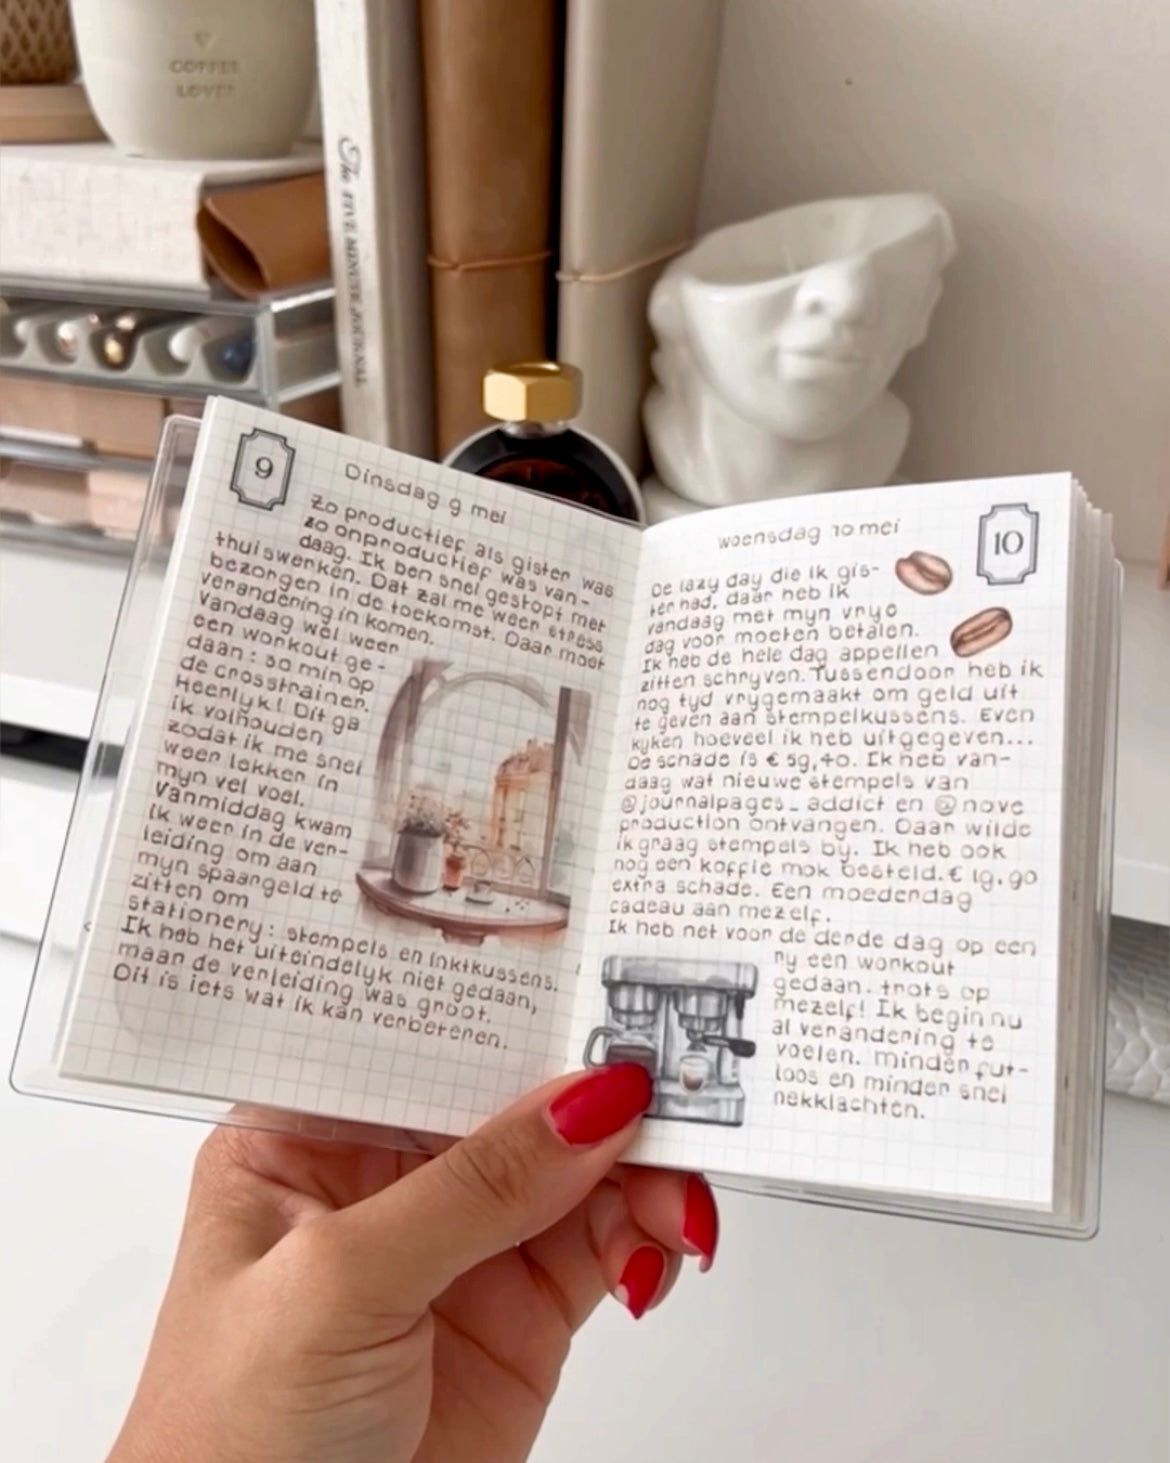 COFFEE
LOVER
The FIVE MINUTE JOURNAL
9
Dinsdag 9 mei
Zo productief als gister was
zo onproductief was van-
daag. Ik ben snel gestopt met
thuiswerken. Dat zal me weer stress
bezorgen in de toekomst. Daar moet
verandering in komen.
Vandaag wel weer
een workout ge-
daan: 30 min op
de crosstrainer.
Heerlyk! Dit ga
ik volhouden
zodat ik me snel
weer lekker in
myn vel voel.
Vanmiddag kwam
Ik weer in de ver-
leiding om aan
myn spaargeld te
zitten om
stationery: stempels en Inktkussens.
Ik heb het uiteindelyk niet gedaan,
maar de verleiding was groot.
Dit is iets wat ik kan verbeteren.
woensdag 10 mei
10
De lazy day die ik gis-
ter had, daar heb ik
vandaag met myn vrye
dag voor moeten betalen.
Ik heb de hele dag appellen
zitten schryven. Tussendoor heb ik
nog tyd vrygemaakt om geld uit
te geven aan stempelkussens. Even
kyken hoeveel ik heb uitgegeven...
De schade is € 59,40. Ik heb van-
daag wat nieuwe stempels van
@journalpages_addict en @nove
production ontvangen. Daar wilde
ik graag stempels by. Ik heb ook
nog een koffie mok besteld. € 19,90
extra schade. Een moederdag
cadeau aan mezelf.
Ik heb net voor de derde dag op een
ry een workout
gedaan. trots op
mezelf! Ik begin nu
al verandering te
voelen. minder fut-
loos en minder snel
nekklachten.